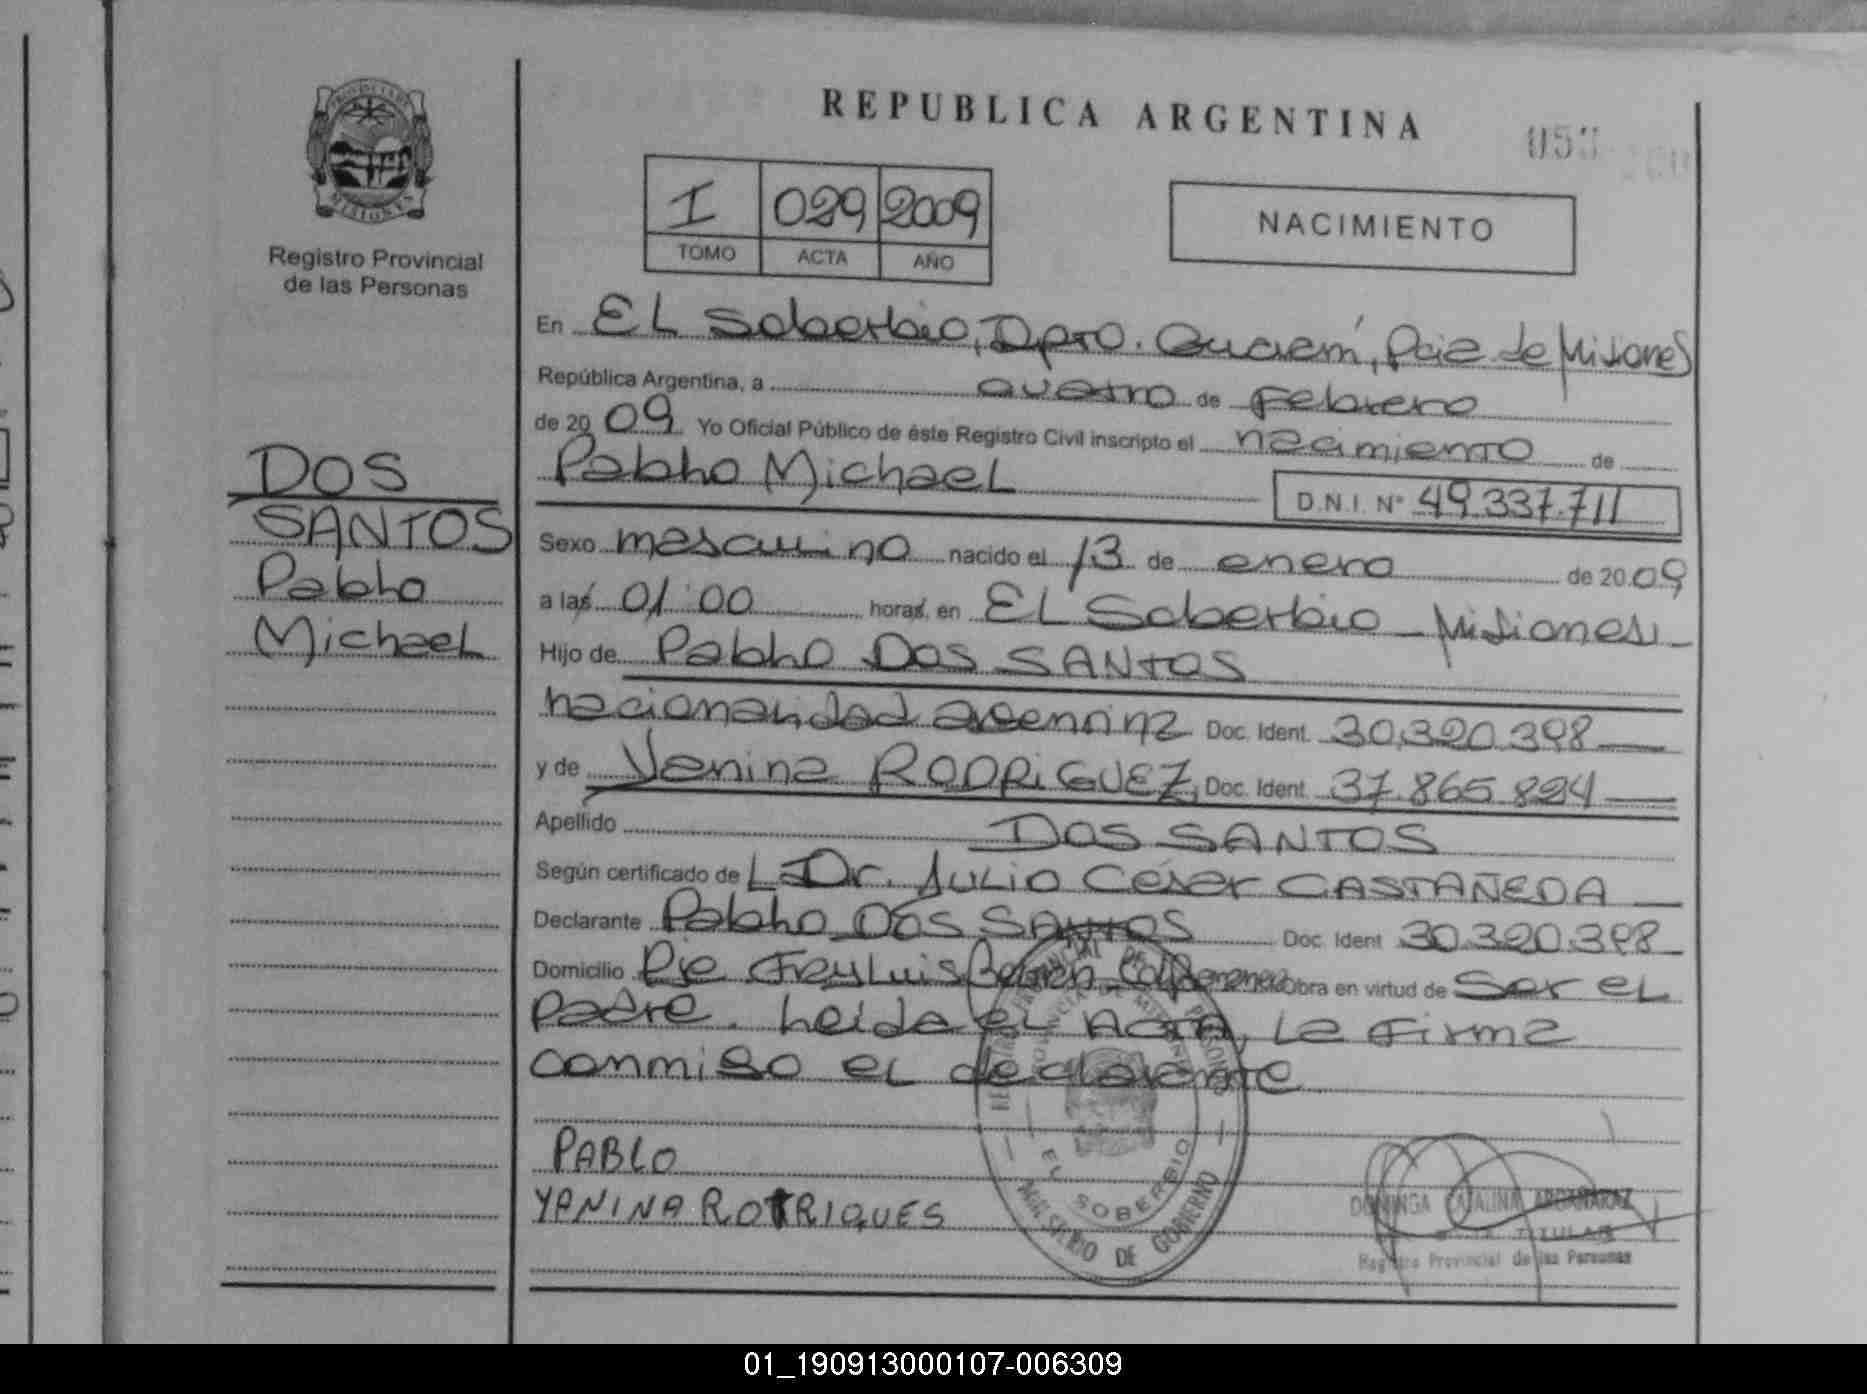 REPUBLICA ARGENTINA
PROVINCIA DE
MISIONES
Registro Provincial
de las Personas
I 029 2009
TOMO ACTA AÑO
NACIMIENTO
En EL Soberbio, Dpto. Guaraní, Pcia de Misiones
República Argentina, a cuatro de Febrero
de 20 09 Yo Oficial Público de éste Registro Civil inscripto el nacimiento de
Pablo Michael
D.N.I. Nº 49.337.711
DOS
SANTOS
Pablo
Michael
Sexo masculino nacido el 13 de enero de 20 09
a las 01:00 horas, en EL Soberbio - Misiones
Hijo de Pablo DOS SANTOS
nacionalidad argentina Doc. Ident. 30.320.398
y de Yanina RODRIGUEZ, Doc. Ident. 37.865.824
Apellido DOS SANTOS
Según certificado de L Dr. JULIO César CASTAÑEDA
Declarante Pablo DOS SANTOS Doc. Ident 30.320.398
Domicilio Pje Fray Luis Beltrán Obra en virtud de Ser el
padre. Leída el ACTA, La Firma
conmigo el declarante
PABLO
YANINA ROTRIQUES
EL SOBERBIO
MINISTERIO DE GOBIERNO
DOMINGA CATALINA
TITULAR
Registro Provincial de las Personas
01_190913000107-006309